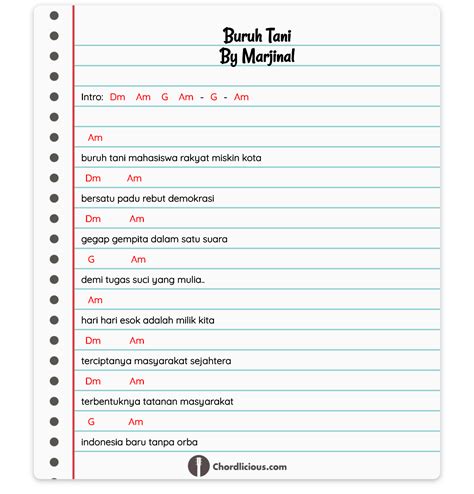 Buruh Tani
By Marjinal
Intro: Dm Am G Am - G - Am
Am
buruh tani mahasiswa rakyat miskin kota
Dm Am
bersatu padu rebut demokrasi
Dm Am
gegap gempita dalam satu suara
G Am
demi tugas suci yang mulia..
Am
hari hari esok adalah milik kita
Dm Am
terciptanya masyarakat sejahtera
Dm Am
terbentuknya tatanan masyarakat
G Am
indonesia baru tanpa orba
Chordlicious.com